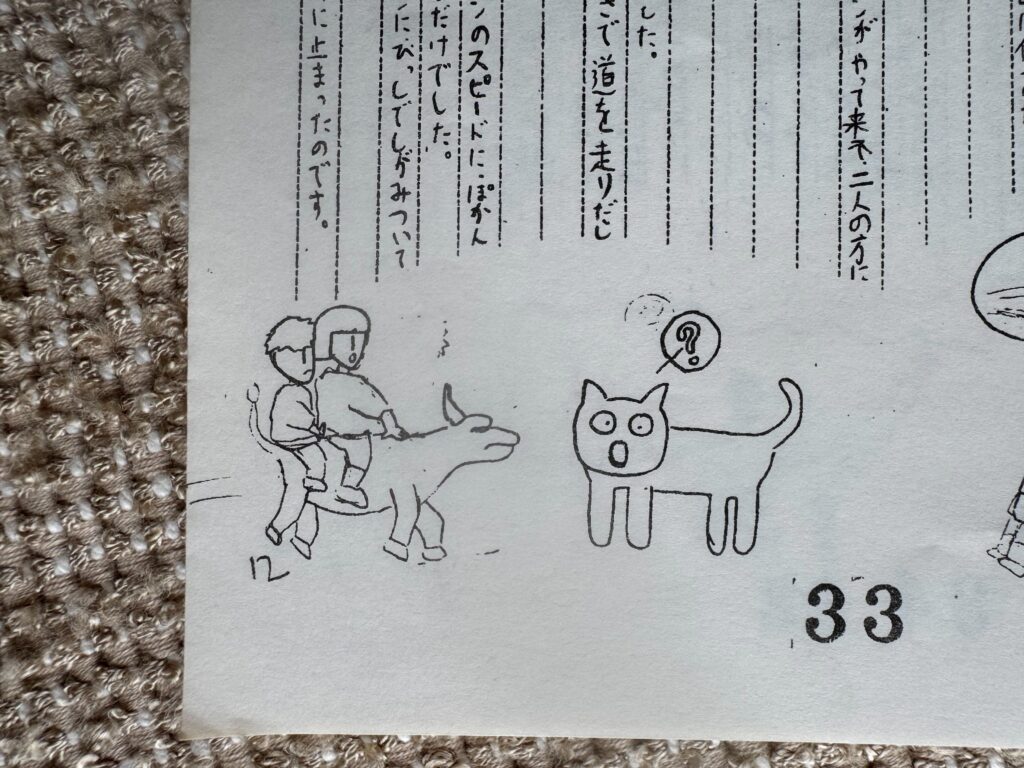 ンがやって来て、二人の方に
した。
さで道を走りだし
ンのスピードにぽかん
だけでした。
ンにひっしでしがみついて
に止まったのです。
?
12
33